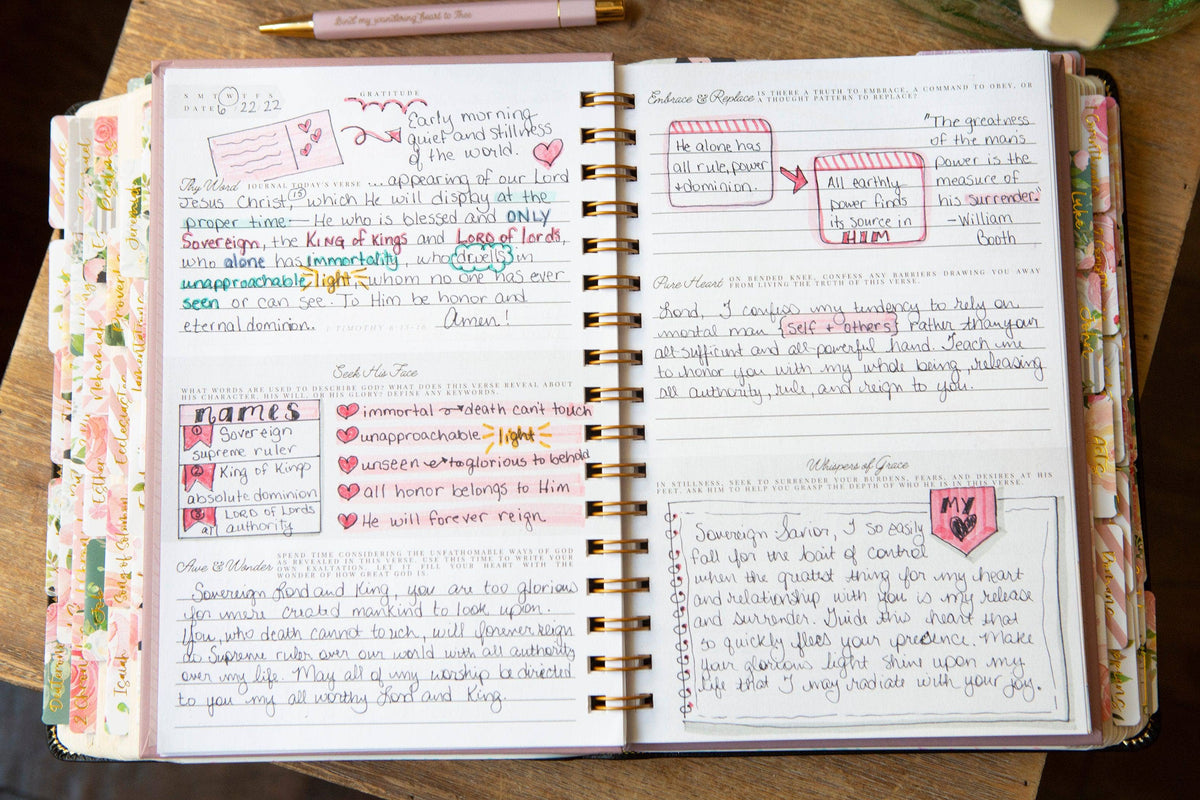 Bind my wandering heart to Thee
S M T W T F S
DATE 6 22 22
GRATITUDE
Early morning
quiet and stillness
of the world.
Thy Word JOURNAL TODAY'S VERSE ... appearing of our Lord
Jesus Christ, 15 which He will display at the
proper time— He who is blessed and ONLY
Sovereign, the KING of KINGS and LORD of lords,
who alone has immortality, who dwells in
unapproachable light, whom no one has ever
seen or can see. To Him be honor and
eternal dominion. 1 TIMOTHY 6:15-16 Amen!
Seek His Face
WHAT WORDS ARE USED TO DESCRIBE GOD? WHAT DOES THIS VERSE REVEAL ABOUT
HIS CHARACTER, HIS WILL, OR HIS GLORY? DEFINE ANY KEYWORDS.
names
1 Sovereign
supreme ruler
2 King of Kings
absolute dominion
3 LORD of Lords
all authority
immortal → death can't touch
unapproachable light
unseen → too glorious to behold
all honor belongs to Him
He will forever reign
Awe & Wonder SPEND TIME CONSIDERING THE UNFATHOMABLE WAYS OF GOD
AS REVEALED IN THIS VERSE. USE THIS TIME TO WRITE YOUR
OWN EXALTATION. LET IT FILL YOUR HEART WITH THE
WONDER OF HOW GREAT GOD IS.
Sovereign Lord and King, you are too glorious
for mere created mankind to look upon.
You, who death cannot touch, will forever reign
as Supreme ruler over our world with all authority
over my life. May all of my worship be directed
to you my all worthy Lord and King.
Embrace & Replace IS THERE A TRUTH TO EMBRACE, A COMMAND TO OBEY, OR
A THOUGHT PATTERN TO REPLACE?
He alone has
all rule, power
+ dominion.
All earthly
power finds
its source in
HIM
"The greatness
of the man's
power is the
measure of
his surrender."
-William
Booth
Pure Heart ON BENDED KNEE, CONFESS ANY BARRIERS DRAWING YOU AWAY
FROM LIVING THE TRUTH OF THIS VERSE.
Lord, I confess my tendency to rely on
mortal man {self + others} rather than your
all-sufficient and all-powerful hand. Teach me
to honor you with my whole being, releasing
all authority, rule, and reign to you.
Whispers of Grace
IN STILLNESS, SEEK TO SURRENDER YOUR BURDENS, FEARS, AND DESIRES AT HIS
FEET. ASK HIM TO HELP YOU GRASP THE DEPTH OF WHO HE IS IN THIS VERSE.
MY
Sovereign Savior, I so easily
fall for the bait of control
when the greatest thing for my heart
and relationship with you is my release
and surrender. Guide this heart that
so quickly flees your presence. Make
your glorious light shine upon my
life that I may radiate with your joy.
Esther
Nehemiah
Proverbs
Ecclesiastes
Song of Solomon
Isaiah
Lamentations
Jeremiah
Luke
John
Acts